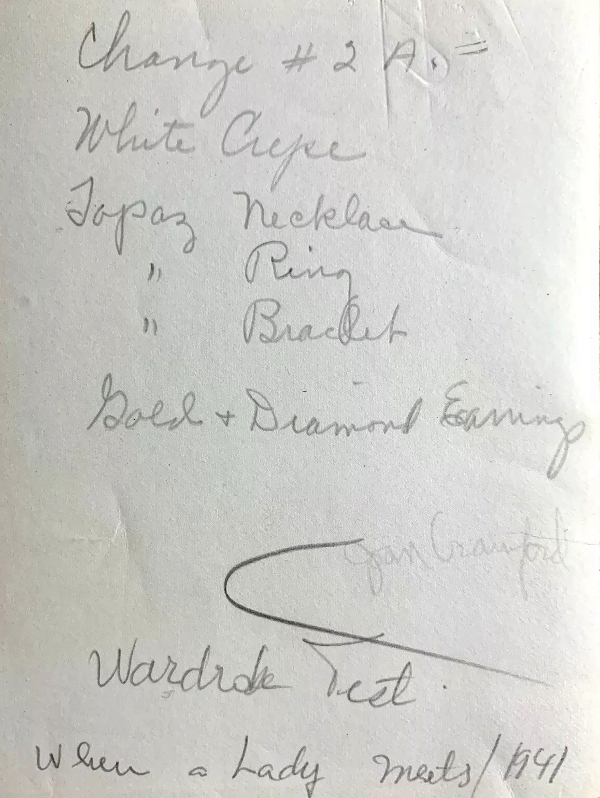 Change # 2 A.
White Crepe
Topaz Necklace
" Ring
" Braclet
Gold + Diamond Earrings
Joan Crawford
Wardrobe Test.
When a Lady Meets / 1941